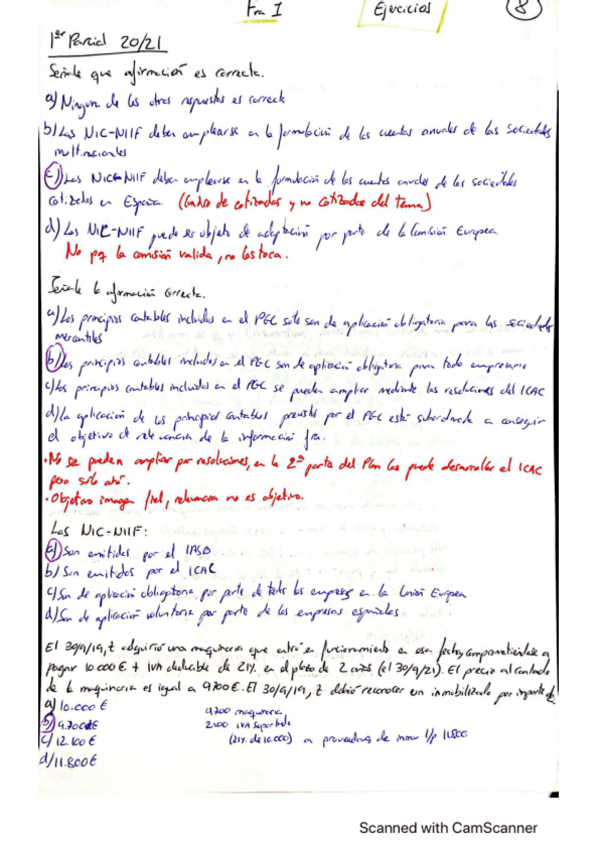 Fra I
Ejercicios
8
1er Parcial 20/21
Señale que afirmación es correcta.
a) Ninguna de las otras respuestas es correcta
b) Las NIC-NIIF deben emplearse en la formulación de las cuentas anuales de las sociedades
multinacionales
c) Las NIC-NIIF deben emplearse en la formulación de las cuentas anuales de las sociedades
cotizadas en España. (Cuadro de cotizadas y no cotizadas del tema)
d) Las NIC-NIIF puede ser objeto de adaptación por parte de la Comisión Europea
No pq la comisión valida, no las toca.
Señale la afirmación correcta.
a) Los principios contables incluidos en el PGC solo son de aplicación obligatoria para las sociedades
mercantiles
b) Los principios contables incluidos en el PGC son de aplicación obligatoria para todo empresario
c) Los principios contables incluidos en el PGC se pueden ampliar mediante las resoluciones del ICAC
d) La aplicación de los principios contables previstos por el PGC está subordinada a conseguir
el objetivo de relevancia de la información fra.
· No se pueden ampliar por resoluciones, en la 2ª parte del Plan las puede desarrollar el ICAC
pero solo ahí.
· Objetivo imagen fiel, relevancia no es objetivo.
Las NIC-NIIF:
a) Son emitidas por el IASB
b) Son emitidas por el ICAC
c) Son de aplicación obligatoria por parte de todas las empresas en la Unión Europea
d) Son de aplicación voluntaria por parte de las empresas españolas.
El 30/9/19, Z adquirió una maquinaria que entró en funcionamiento en esa fecha, comprometiéndose a
pagar 10.000 € + IVA deducible de 21% en el plazo de 2 años (el 30/9/21). El precio al contado
de la maquinaria es igual a 9700 €. El 30/9/19, Z debió reconocer un inmovilizado por importe de
a) 10.000 €
b) 9.700 €
c) 12.100 €
d) 11.800 €
9.700 maquinaria
2100 IVA soportado
(21% de 10.000) a proveedores de inmov l/p 11.800
Scanned with CamScanner